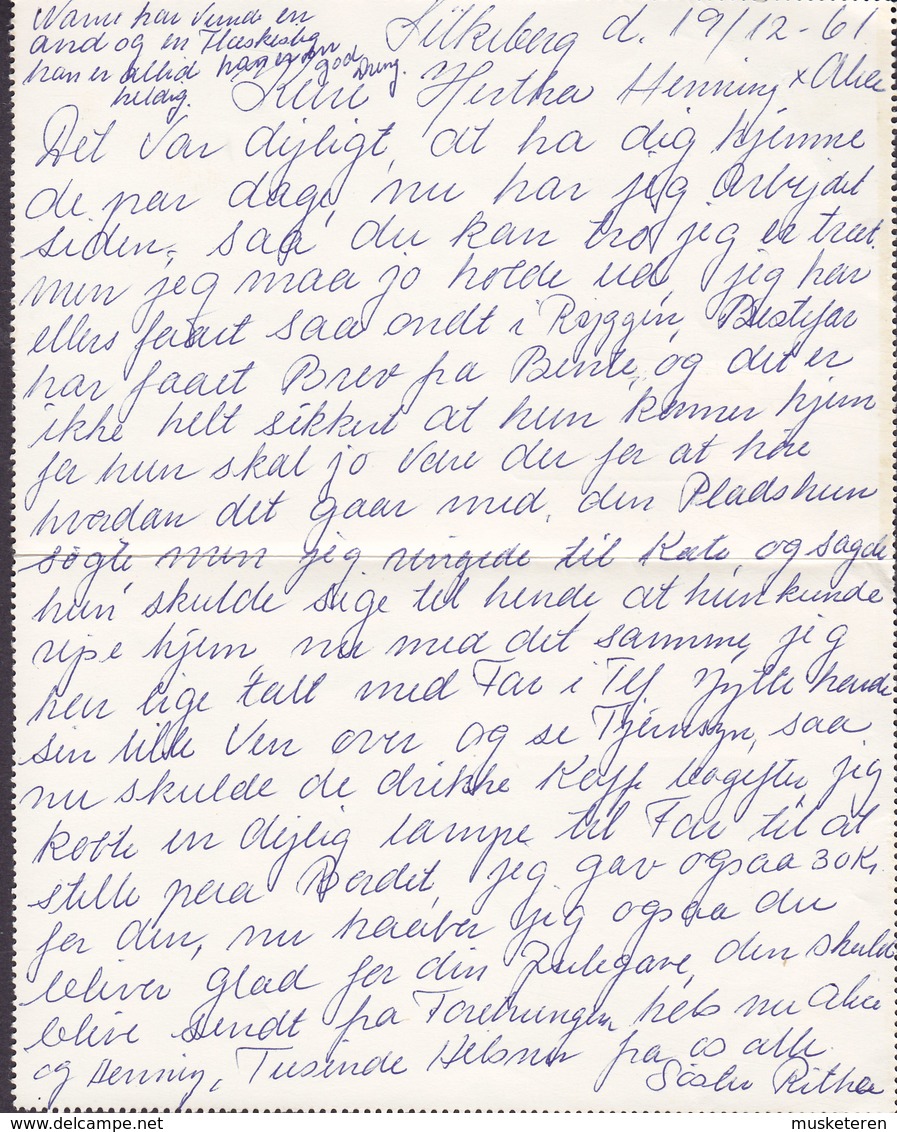 Navne har vundet en
and og en Flæskesteg
han er altid han er en god Dreng.
heldig.
d. 19/12-61
Kære Hertha Henning x Alice
Det var dejligt, at ha dig hjemme
de par dage, nu har jeg arbejdet
siden, saa du kan tro jeg er træt.
men jeg maa jo holde ud, jeg har
ellers faaet saa ondt i Ryggen, Bestefar
har faaet Brev fra Bente, og det er
ikke helt sikkert at hun kommer hjem
for hun skal jo være der for at høre
hvordan det gaar med, den Plads hun
søgte men jeg ringede til Kate, og sagde
hun skulde sige til hende at hun kunde
rejse hjem, nu med det samme, jeg
hen lige talt med Far i Tlf. Jytte hende
sin lille Ven over og se Fjernsyn, saa
nu skulde de drikke Kaffe bagefter, jeg
købte en dejlig lampe til Far til at
stille paa Bordet, jeg gav ogsaa 30 Kr.
for den, nu haaber jeg ogsaa du
bliver glad for din Julegave, den skulde
blive sendt fra Foretningen, hels nu Alice
og Henning, Tusinde Hilsner fra os alle.
Søster Ritha
musketeren
© www.delcampe.net